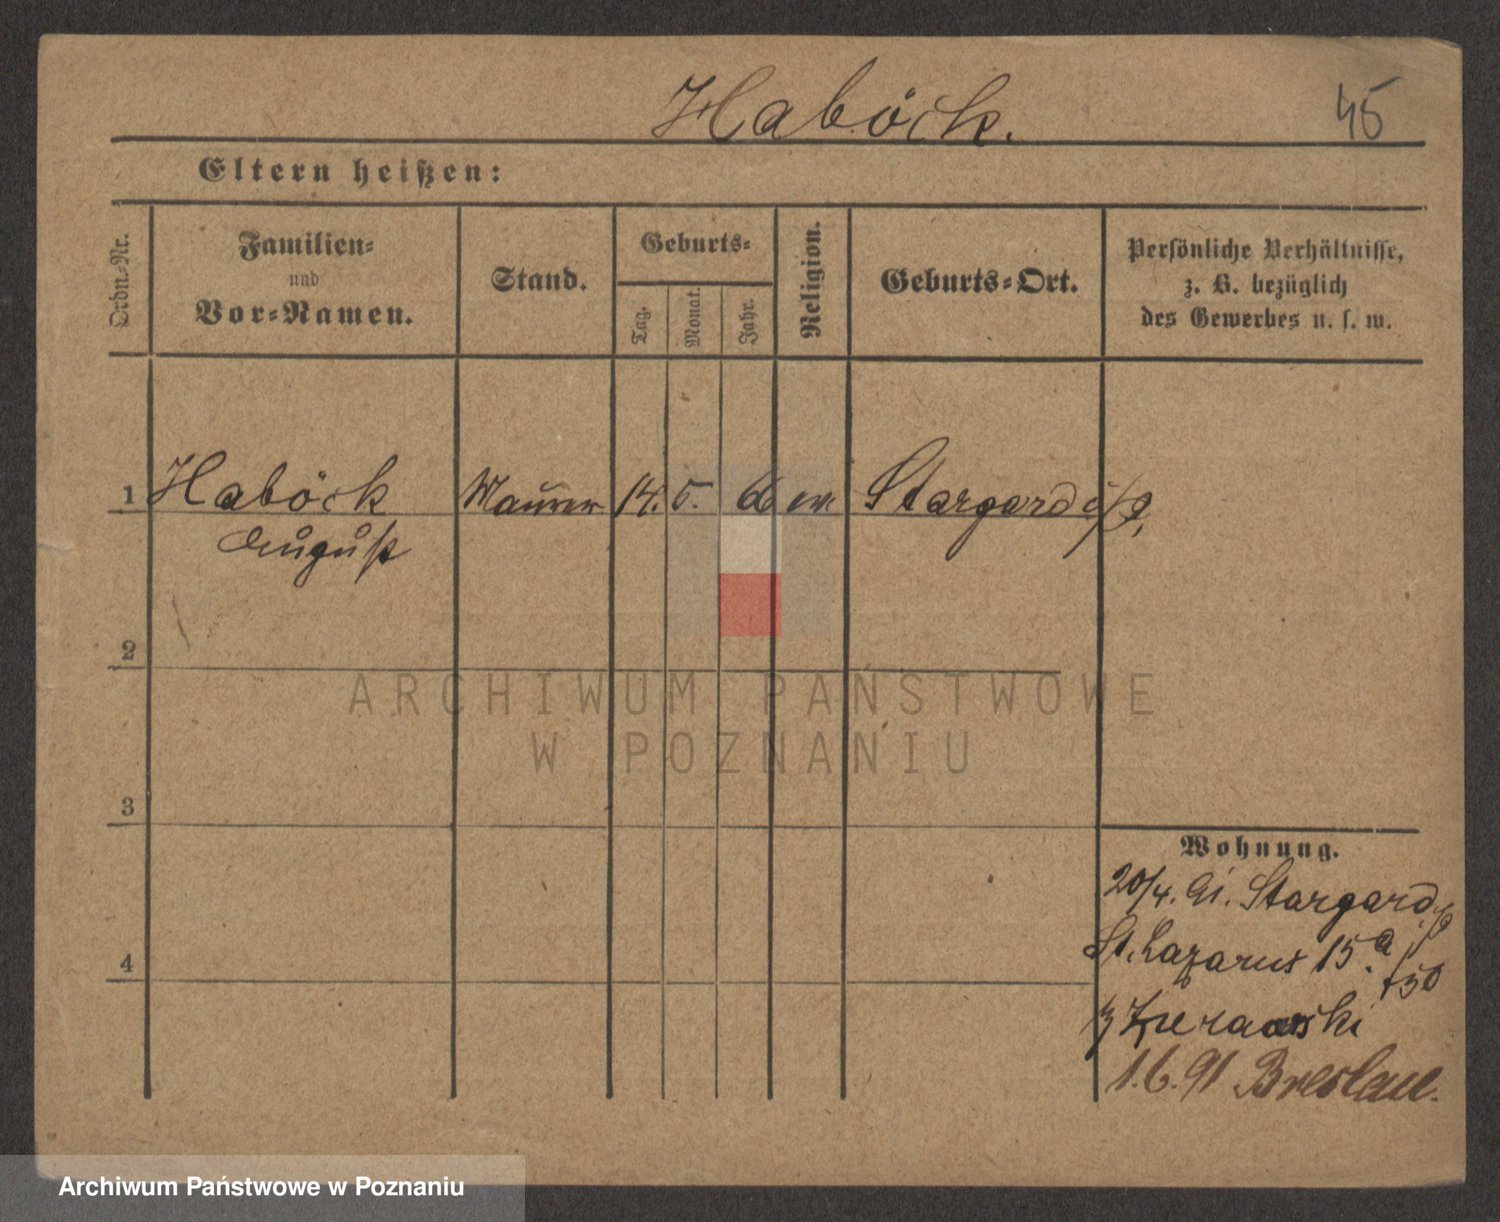 Haböck. 45
Eltern heißen:
Ordn.=Nr.
Familien=
und
Vor=Namen.
Stand.
Geburts=
Tag.
Monat.
Jahr.
Religion.
Geburts=Ort.
Persönliche Verhältnisse,
z. B. bezüglich
des Gewerbes u. s. w.
1 Haböck Maurer 14. 5. 66 ev Stargard i/P.
August
2
ARCHIWUM PAŃSTWOWE
W POZNANIU
3
4
Wohnung.
20/4. 91. Stargard
St. Lazarus 15.a
1.6.91 Breslau.
Archiwum Państwowe w Poznaniu